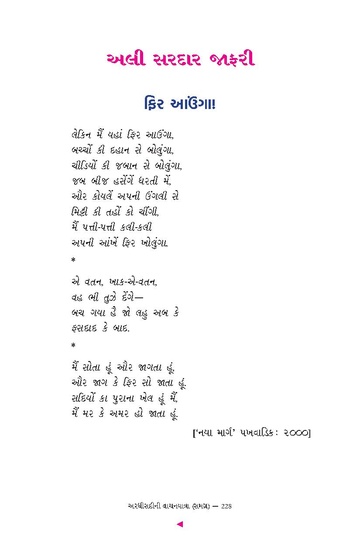 અલી સરદાર જાફરી
ફિર આઉંગા!
લેકિન મૈં યહાં ફિર આઉંગા,
બચ્ચોં કી દહાન સે બોલુંગા,
ચીડિયોં કી જબાન સે બોલુંગા,
જબ બીજ હસેંગેં ધરતી મેં,
ઔર કોયલેં અપની ઉંગલી સે
મિટ્ટી કી તહોં કો ચીંગી,
મૈં પત્તી-પત્તી કલી-કલી
અપની આંખેં ફિર ખોલુંગા.
*
એ વતન, ખાક-એ-વતન,
વહ ભી તુઝે દેંગે—
બચ ગયા હૈ જો લહુ અબ કે
ફસાદાદ કે બાદ.
*
મૈં સોતા હૂં ઔર જાગતા હૂં,
ઔર જાગ કે ફિર સો જાતા હૂં,
સદિયોં કા પુરાના ખેલ હૂં મૈં,
મૈં મર કે અમર હો જાતા હૂં.
['નયા માર્ગ' પખવાડિક: ૨૦૦૦]
અરધીસદીની વાચનયાત્રા (સમગ્ર) — 228